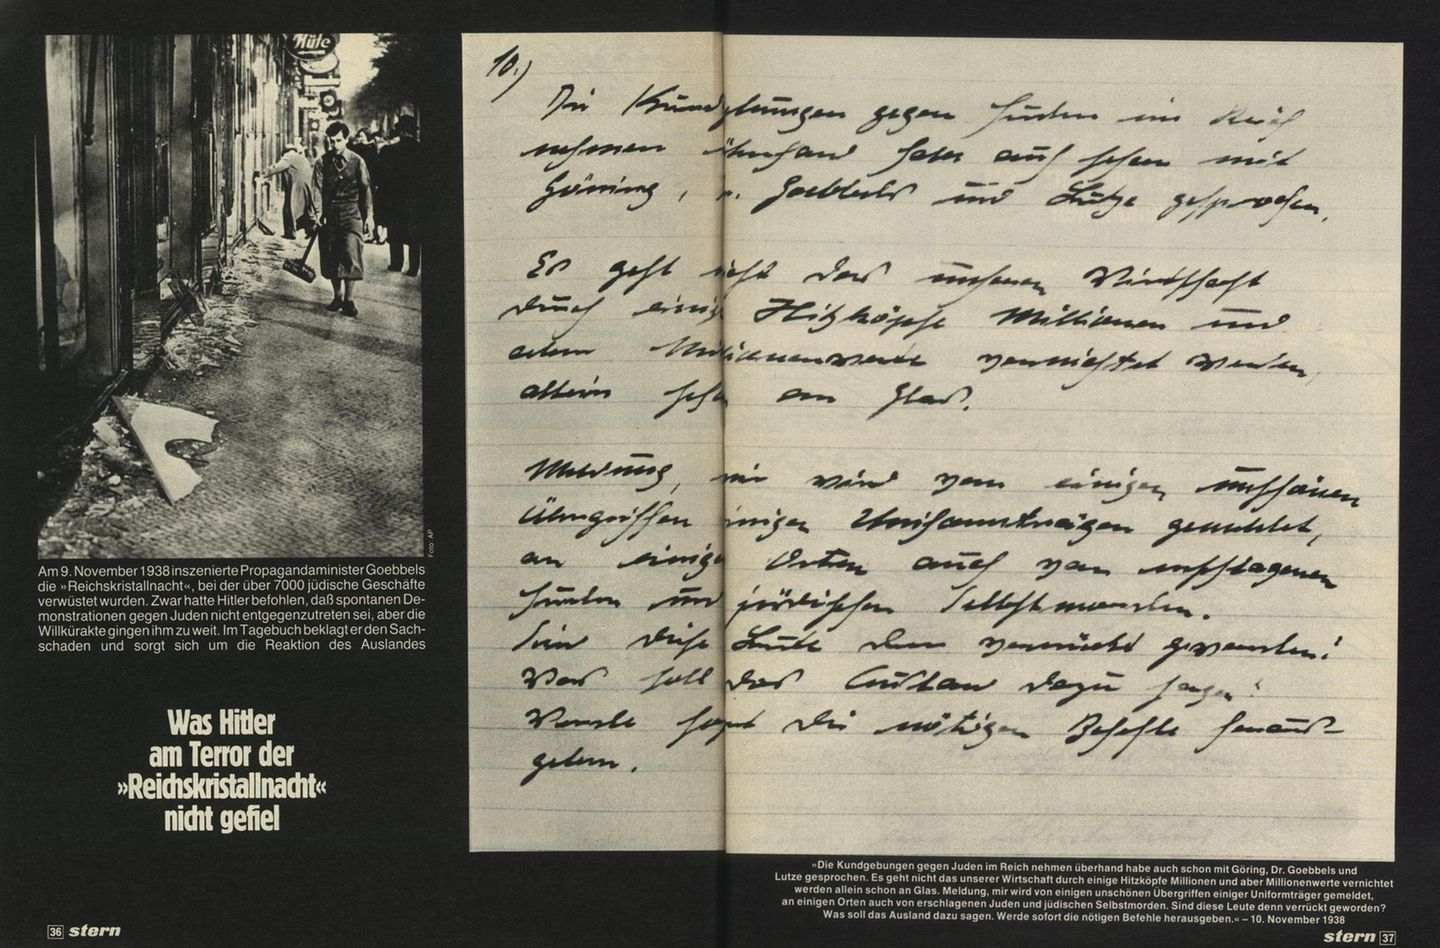 Hüte
Foto: AP
Am 9. November 1938 inszenierte Propagandaminister Goebbels
die »Reichskristallnacht«, bei der über 7000 jüdische Geschäfte
verwüstet wurden. Zwar hatte Hitler befohlen, daß spontanen De-
monstrationen gegen Juden nicht entgegenzutreten sei, aber die
Willkürakte gingen ihm zu weit. Im Tagebuch beklagt er den Sach-
schaden und sorgt sich um die Reaktion des Auslandes
Was Hitler
am Terror der
»Reichskristallnacht«
nicht gefiel
36 stern
10.)
Die Kundgebungen gegen Juden im Reich
nehmen überhand habe auch schon mit
Göring, Dr. Goebbels und Lutze gesprochen.
Es geht nicht das unserer Wirtschaft
durch einige Hitzköpfe Millionen und
aber Millionenwerte vernichtet werden,
allein schon an Glas.
Meldung, mir wird von einigen unschönen
Übergriffen einiger Uniformträger gemeldet,
an einigen Orten auch von erschlagenen
Juden und jüdischen Selbstmorden.
Sind diese Leute denn verrückt geworden?
Was soll das Ausland dazu sagen?
Werde sofort die nötigen Befehle heraus-
geben.
»Die Kundgebungen gegen Juden im Reich nehmen überhand habe auch schon mit Göring, Dr. Goebbels und
Lutze gesprochen. Es geht nicht das unserer Wirtschaft durch einige Hitzköpfe Millionen und aber Millionenwerte vernichtet
werden allein schon an Glas. Meldung, mir wird von einigen unschönen Übergriffen einiger Uniformträger gemeldet,
an einigen Orten auch von erschlagenen Juden und jüdischen Selbstmorden. Sind diese Leute denn verrückt geworden?
Was soll das Ausland dazu sagen. Werde sofort die nötigen Befehle herausgeben.« – 10. November 1938
stern 37